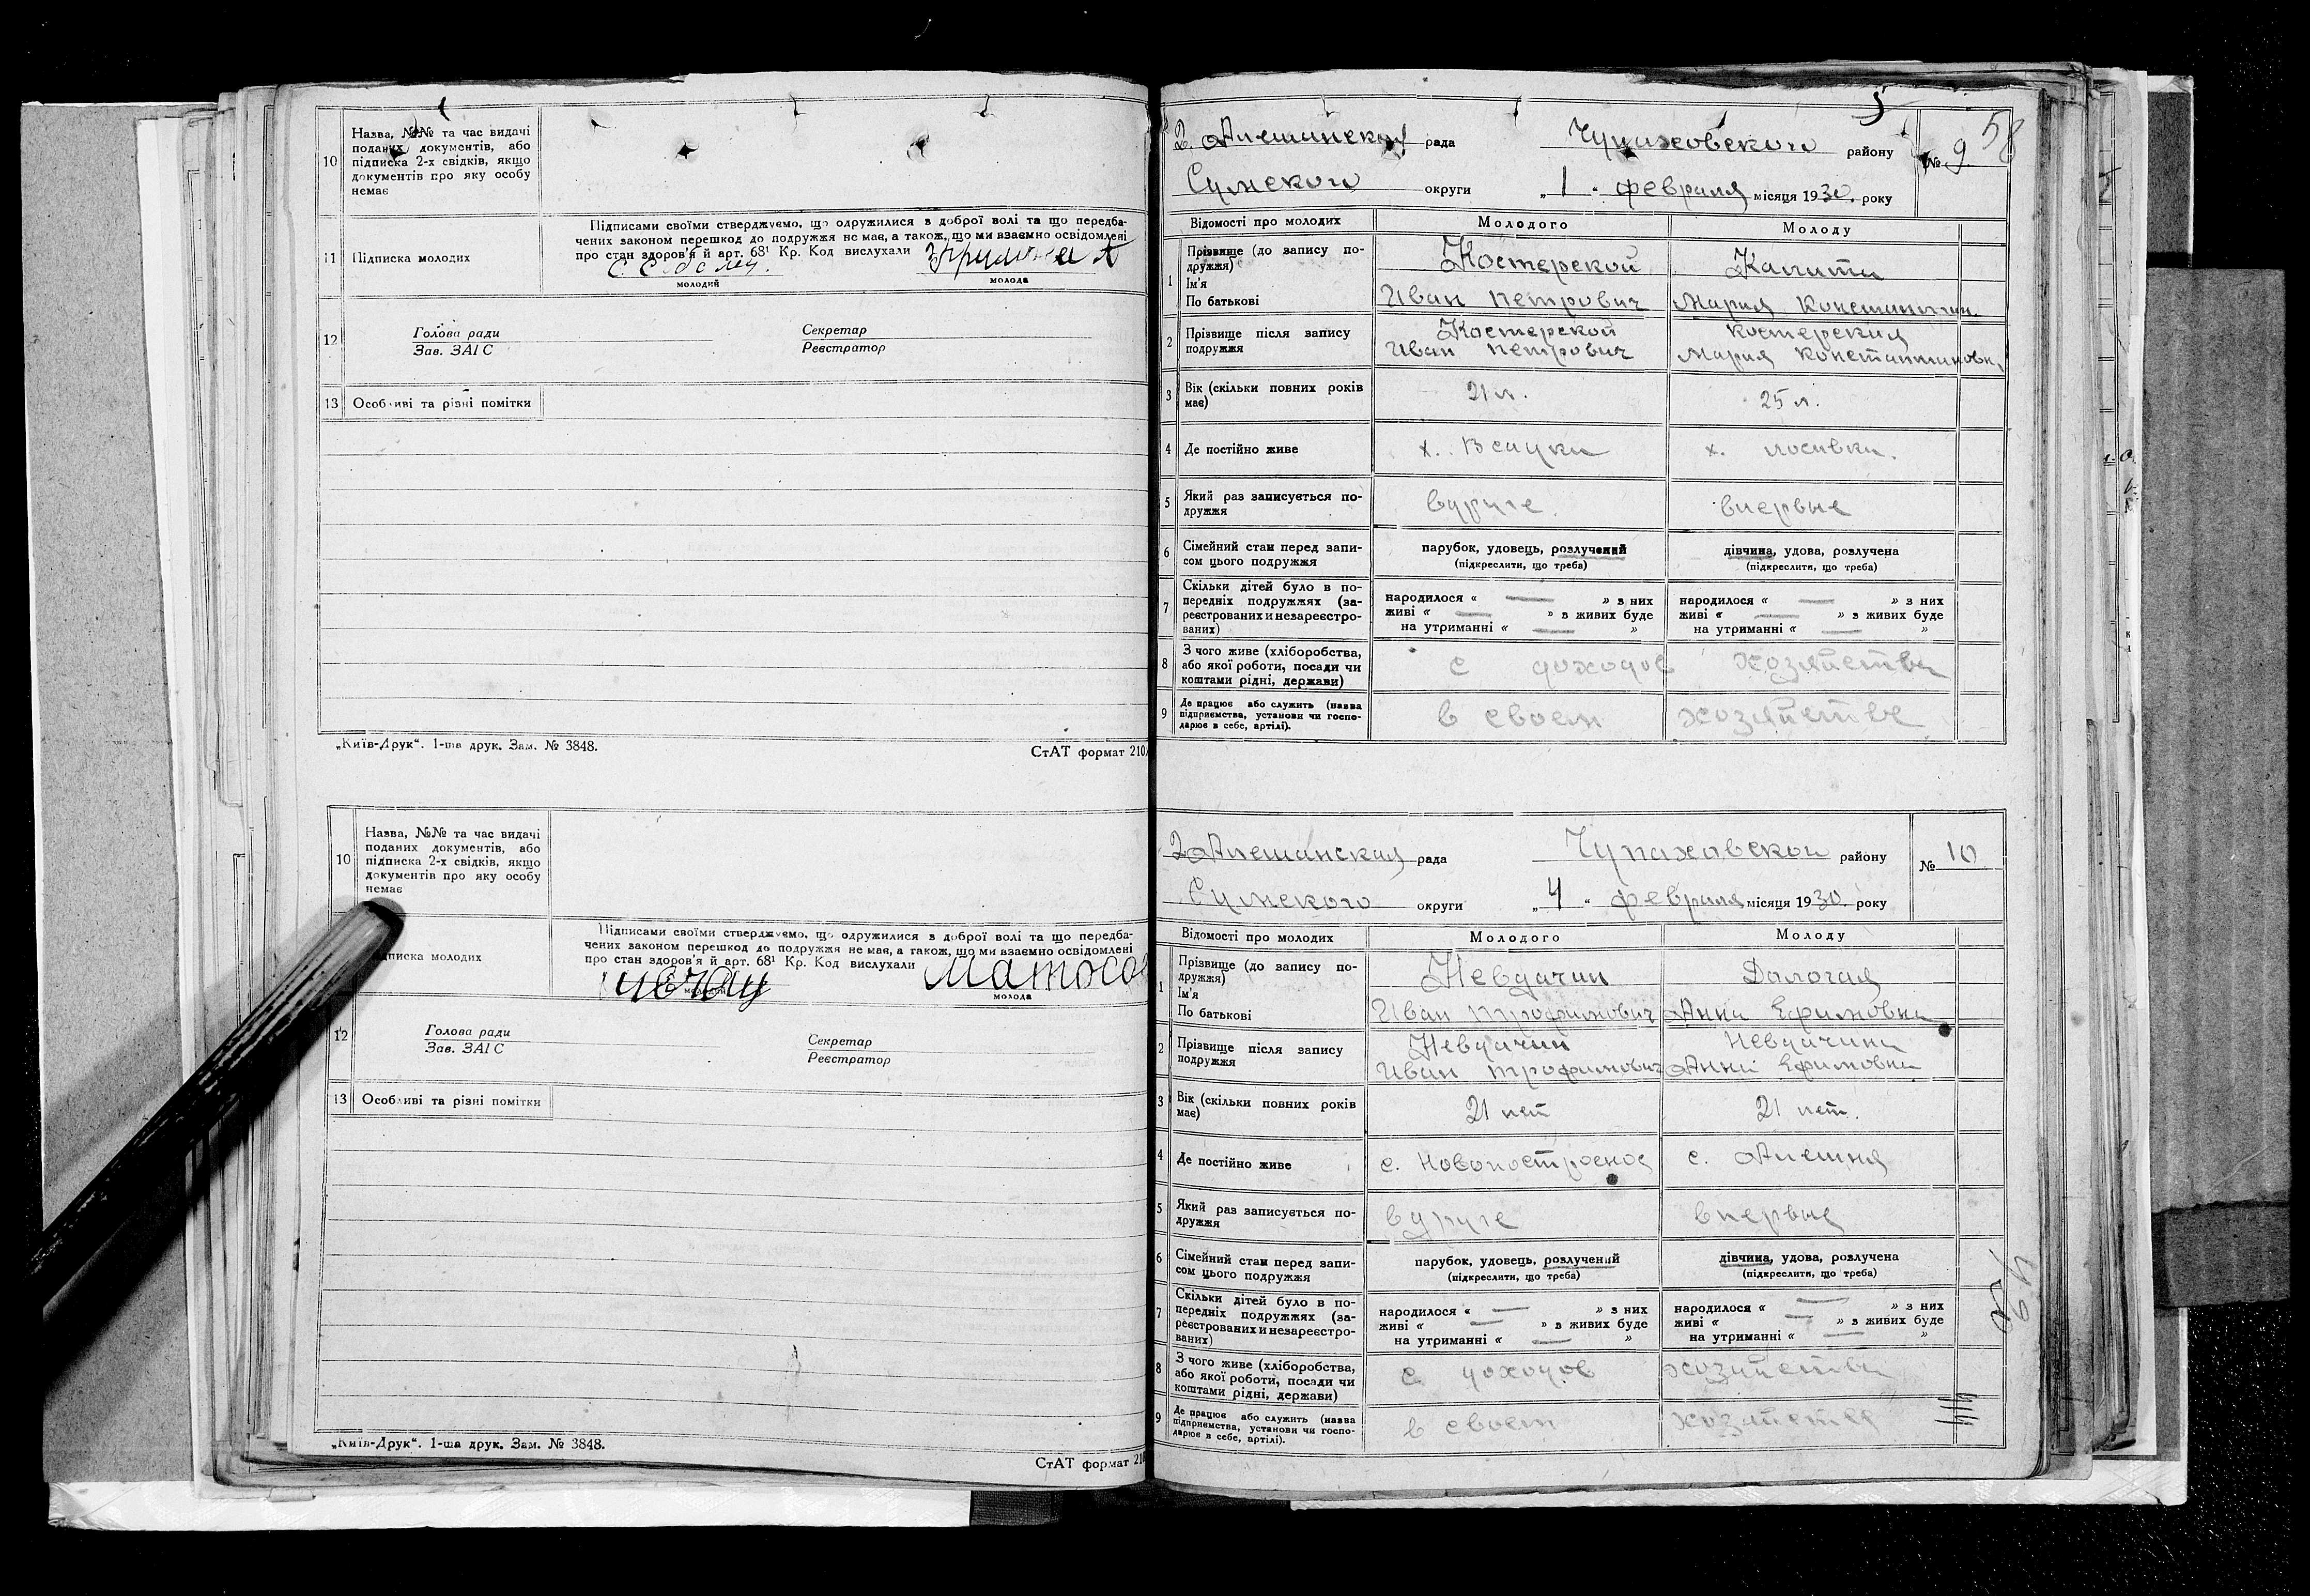 10
Назва, №№ та час видачі
поданих документів, або
підписка 2-х свідків, якщо
документів про яку особу
немає
11
Підписка молодих
Підписами своїми стверджуємо, що одружилися з доброї волі та що передба-
чених законом перешкод до подружжя не має, а також, що ми взаємно освідомлені
про стан здоров'я й арт. 68¹ Кр. Код вислухали
молодий
молода
12
Голова ради
Зав. ЗАГС
Секретар
Реєстратор
13
Особливі та різні помітки
„Київ-Друк“. 1-ша друк. Зам. № 3848.
СтАТ формат 210
10
Назва, №№ та час видачі
поданих документів, або
підписка 2-х свідків, якщо
документів про яку особу
немає
дписка молодих
Підписами своїми стверджуємо, що одружилися з доброї волі та що передба-
чених законом перешкод до подружжя не має, а також, що ми взаємно освідомлені
про стан здоров'я й арт. 68¹ Кр. Код вислухали
молодий
молода
12
Голова ради
Зав. ЗАГС
Секретар
Реєстратор
13
Особливі та різні помітки
„Київ-Друк“. 1-ша друк. Зам. № 3848.
СтАТ формат 210
58
2 Алешанская рада Чупаховского району № 9
Сумского округи „1“ февраля місяця 1930. року
Відомості про молодих
Молодого
Молоду
1
Прізвище (до запису по-
дружжя)
Ім'я
По батькові
Костерской
Иван Петрович
Мария
2
Прізвище після запису
подружжя
Костерской
Иван Петрович
Костерская
Мария Константиновн.
3
Вік (скільки повних років
має)
21 л.
25 л.
4
Де постійно живе
х.
х.
5
Який раз записується по-
дружжя
вдруге
впервые
6
Сімейний стан перед запи-
сом цього подружжя
парубок, удовець, розлучений
(підкреслити, що треба)
дівчина, удова, розлучена
(підкреслити, що треба)
7
Скільки дітей було в по-
передніх подружжях (за-
реєстрованих и незареєстро-
ваних)
народилося « — » з них
живі « — » з живих буде
на утриманні « — »
народилося « — » з них
живі « — » з живих буде
на утриманні « — »
8
З чого живе (хліборобства,
або якої роботи, посади чи
коштами рідні, держави)
с доходов хозяйства
9
Де працює або служить (назва
підприємства, установи чи госпо-
дарює в себе, артілі).
в своем хозяйстве
2 Алешанская рада Чупаховской району № 10
Сумского округи „4“ февраля місяця 1930. року
Відомості про молодих
Молодого
Молоду
1
Прізвище (до запису по-
дружжя)
Ім'я
По батькові
Невдачин
Иван Трофимович
Дологая
Анна Ефимовна
2
Прізвище після запису
подружжя
Невдачин
Иван Трофимович
Невдачина
Анна Ефимовна
3
Вік (скільки повних років
має)
21 лет
21 лет.
4
Де постійно живе
с. Новопостроеное
с. Алешня
5
Який раз записується по-
дружжя
вдруге
впервые
6
Сімейний стан перед запи-
сом цього подружжя
парубок, удовець, розлучений
(підкреслити, що треба)
дівчина, удова, розлучена
(підкреслити, що треба)
7
Скільки дітей було в по-
передніх подружжях (за-
реєстрованих и незареєстро-
ваних)
народилося « — » з них
живі « — » з живих буде
на утриманні « — »
народилося « — » з них
живі « — » з живих буде
на утриманні « — »
8
З чого живе (хліборобства,
або якої роботи, посади чи
коштами рідні, держави)
с доходов хозяйства
9
Де працює або служить (назва
підприємства, установи чи госпо-
дарює в себе, артілі).
в своем хозяйстве